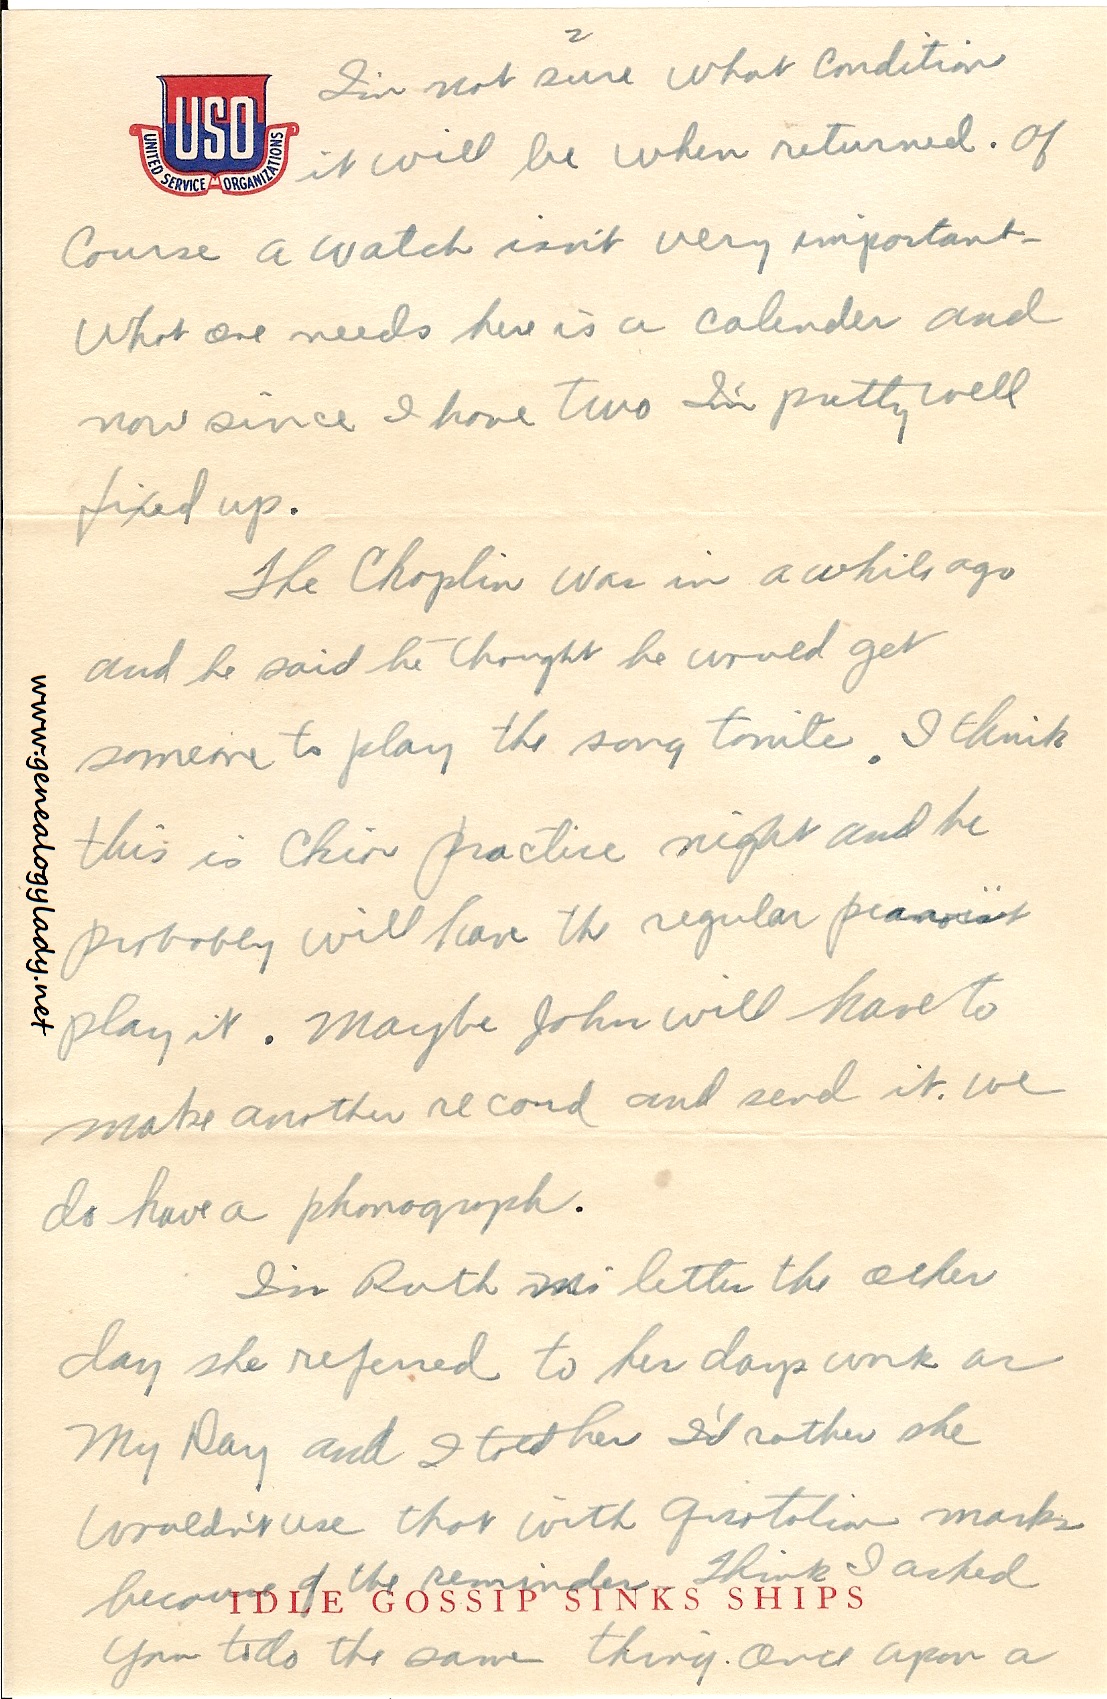 2
USO
UNITED SERVICE ORGANIZATIONS
I'm not sure what condition
it will be when returned. Of
Course a watch isn't very important-
What one needs here is a calender and
now since I have two I'm pretty well
fixed up.
The Chaplin was in awhile ago
and he said he thought he would get
someone to play the song tonite. I think
this is Choir practice night and he
probably will have the regular pianoist
play it. Maybe John will have to
make another record and send it. We
do have a phonograph.
In Ruth letter the other
day she referred to her days work as
My Day and I told her I'd rather she
wouldn't use that with quotation marks
because of the reminder. Think I asked
IDLE GOSSIP SINKS SHIPS
you to do the same thing. Once upon a
www.genealogylady.net